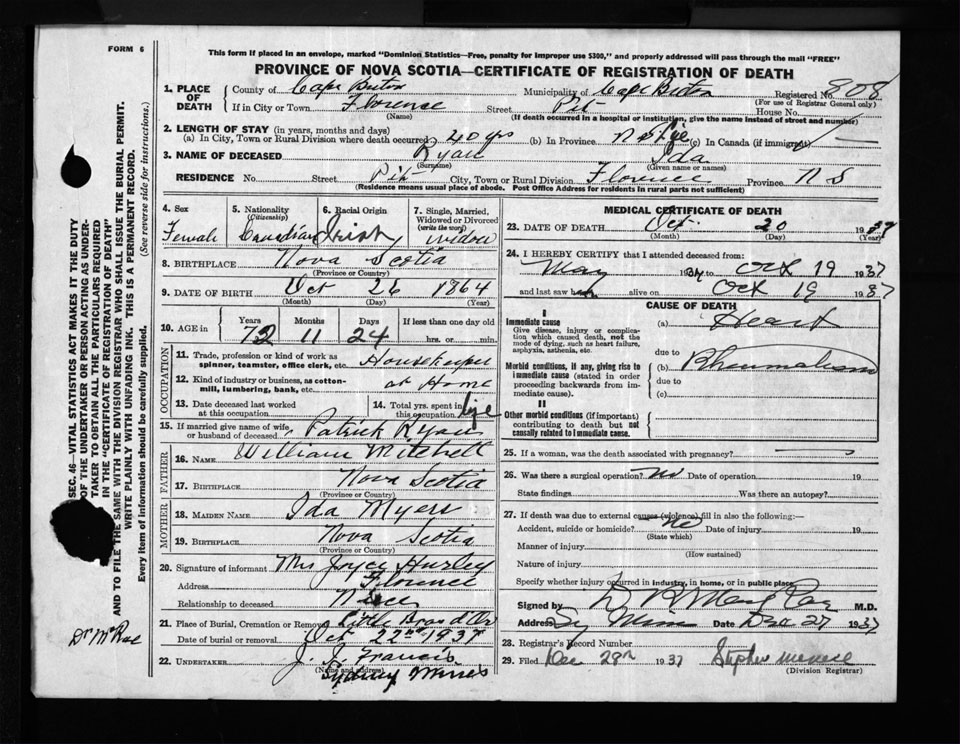 FORM 6
This form if placed in an envelope, marked "Dominion Statistics—Free, penalty for improper use $300," and properly addressed will pass through the mail "FREE"
PROVINCE OF NOVA SCOTIA—CERTIFICATE OF REGISTRATION OF DEATH
1. PLACE OF DEATH County of Cape Breton Municipality of Cape Breton Registered No. 808
(For use of Registrar General only)
If in City or Town Florence Street Pit House No.
(Name) (If death occurred in a hospital or institution, give the name instead of street and number)
2. LENGTH OF STAY (in years, months and days)
(a) In City, Town or Rural Division where death occurred 40 yrs (b) In Province Native (c) In Canada (if immigrant)
3. NAME OF DECEASED Ryan Ida
(Surname) (Given name or names)
RESIDENCE No. Street Pit City, Town or Rural Division Florence Province N S
(Residence means usual place of abode. Post Office Address for residents in rural parts not sufficient)
4. Sex Female
5. Nationality (Citizenship) Canadian
6. Racial Origin Irish
7. Single, Married, Widowed or Divorced (write the word) Widow
8. BIRTHPLACE Nova Scotia
(Province or Country)
9. DATE OF BIRTH Oct 26 1864
(Month) (Day) (Year)
10. AGE in Years Months Days If less than one day
72 11 24 hrs. or min.
OCCUPATION
11. Trade, profession or kind of work as spinner, teamster, office clerk, etc. Housekeeper
12. Kind of industry or business, as cotton-mill, lumbering, bank, etc. at Home
13. Date deceased last worked at this occupation
14. Total yrs. spent in this occupation life
15. If married give name of wife or husband of deceased Patrick Ryan
FATHER
16. NAME William Mitchell
17. BIRTHPLACE Nova Scotia
(Province or Country)
MOTHER
18. MAIDEN NAME Ida Myers
19. BIRTHPLACE Nova Scotia
(Province or Country)
20. Signature of informant Mrs Joyce Hurley
Address Florence
Relationship to deceased Niece
21. Place of Burial, Cremation or Removal Little Bras d'Or
Date of burial or removal Oct 22nd 1937
22. UNDERTAKER J. J. Francis
(Name and address) Sydney Mines
MEDICAL CERTIFICATE OF DEATH
23. DATE OF DEATH Oct 20 1937
(Month) (Day) (Year)
24. I HEREBY CERTIFY that I attended deceased from:
May 1937 to Oct 19 1937
and last saw h alive on Oct 19 1937
CAUSE OF DEATH
I
Immediate cause
Give disease, injury or complication which caused death, not the mode of dying, such as heart failure, asphyxia, asthenia, etc.
(a) Heart
due to
Morbid conditions, if any, giving rise to immediate cause (stated in order proceeding backwards from immediate cause).
(b) Rheumatism
due to
(c)
II
Other morbid conditions (if important) contributing to death but not causally related to immediate cause.
25. If a woman, was the death associated with pregnancy?
26. Was there a surgical operation? no Date of operation 19
State findings Was there an autopsy?
27. If death was due to external causes (violence) fill in also the following:—
Accident, suicide or homicide? no Date of injury 19
(State which)
Manner of injury
(How sustained)
Nature of injury
Specify whether injury occurred in industry, in home, or in public place
Signed by M.D.
Address Sy Mines Date Dec 27 1937
28. Registrar's Record Number
29. Filed Dec 28th 1937 Stephen
(Division Registrar)
SEC. 46—VITAL STATISTICS ACT MAKES IT THE DUTY
OF THE UNDERTAKER OR PERSON ACTING AS UNDER-
TAKER TO OBTAIN ALL THE PARTICULARS REQUIRED
IN THE "CERTIFICATE OF REGISTRATION OF DEATH"
AND TO FILE THE SAME WITH THE DIVISION REGISTRAR WHO SHALL ISSUE THE BURIAL PERMIT.
WRITE PLAINLY WITH UNFADING INK. THIS IS A PERMANENT RECORD.
Every item of information should be carefully supplied. (See reverse side for instructions.)
Dr McRae